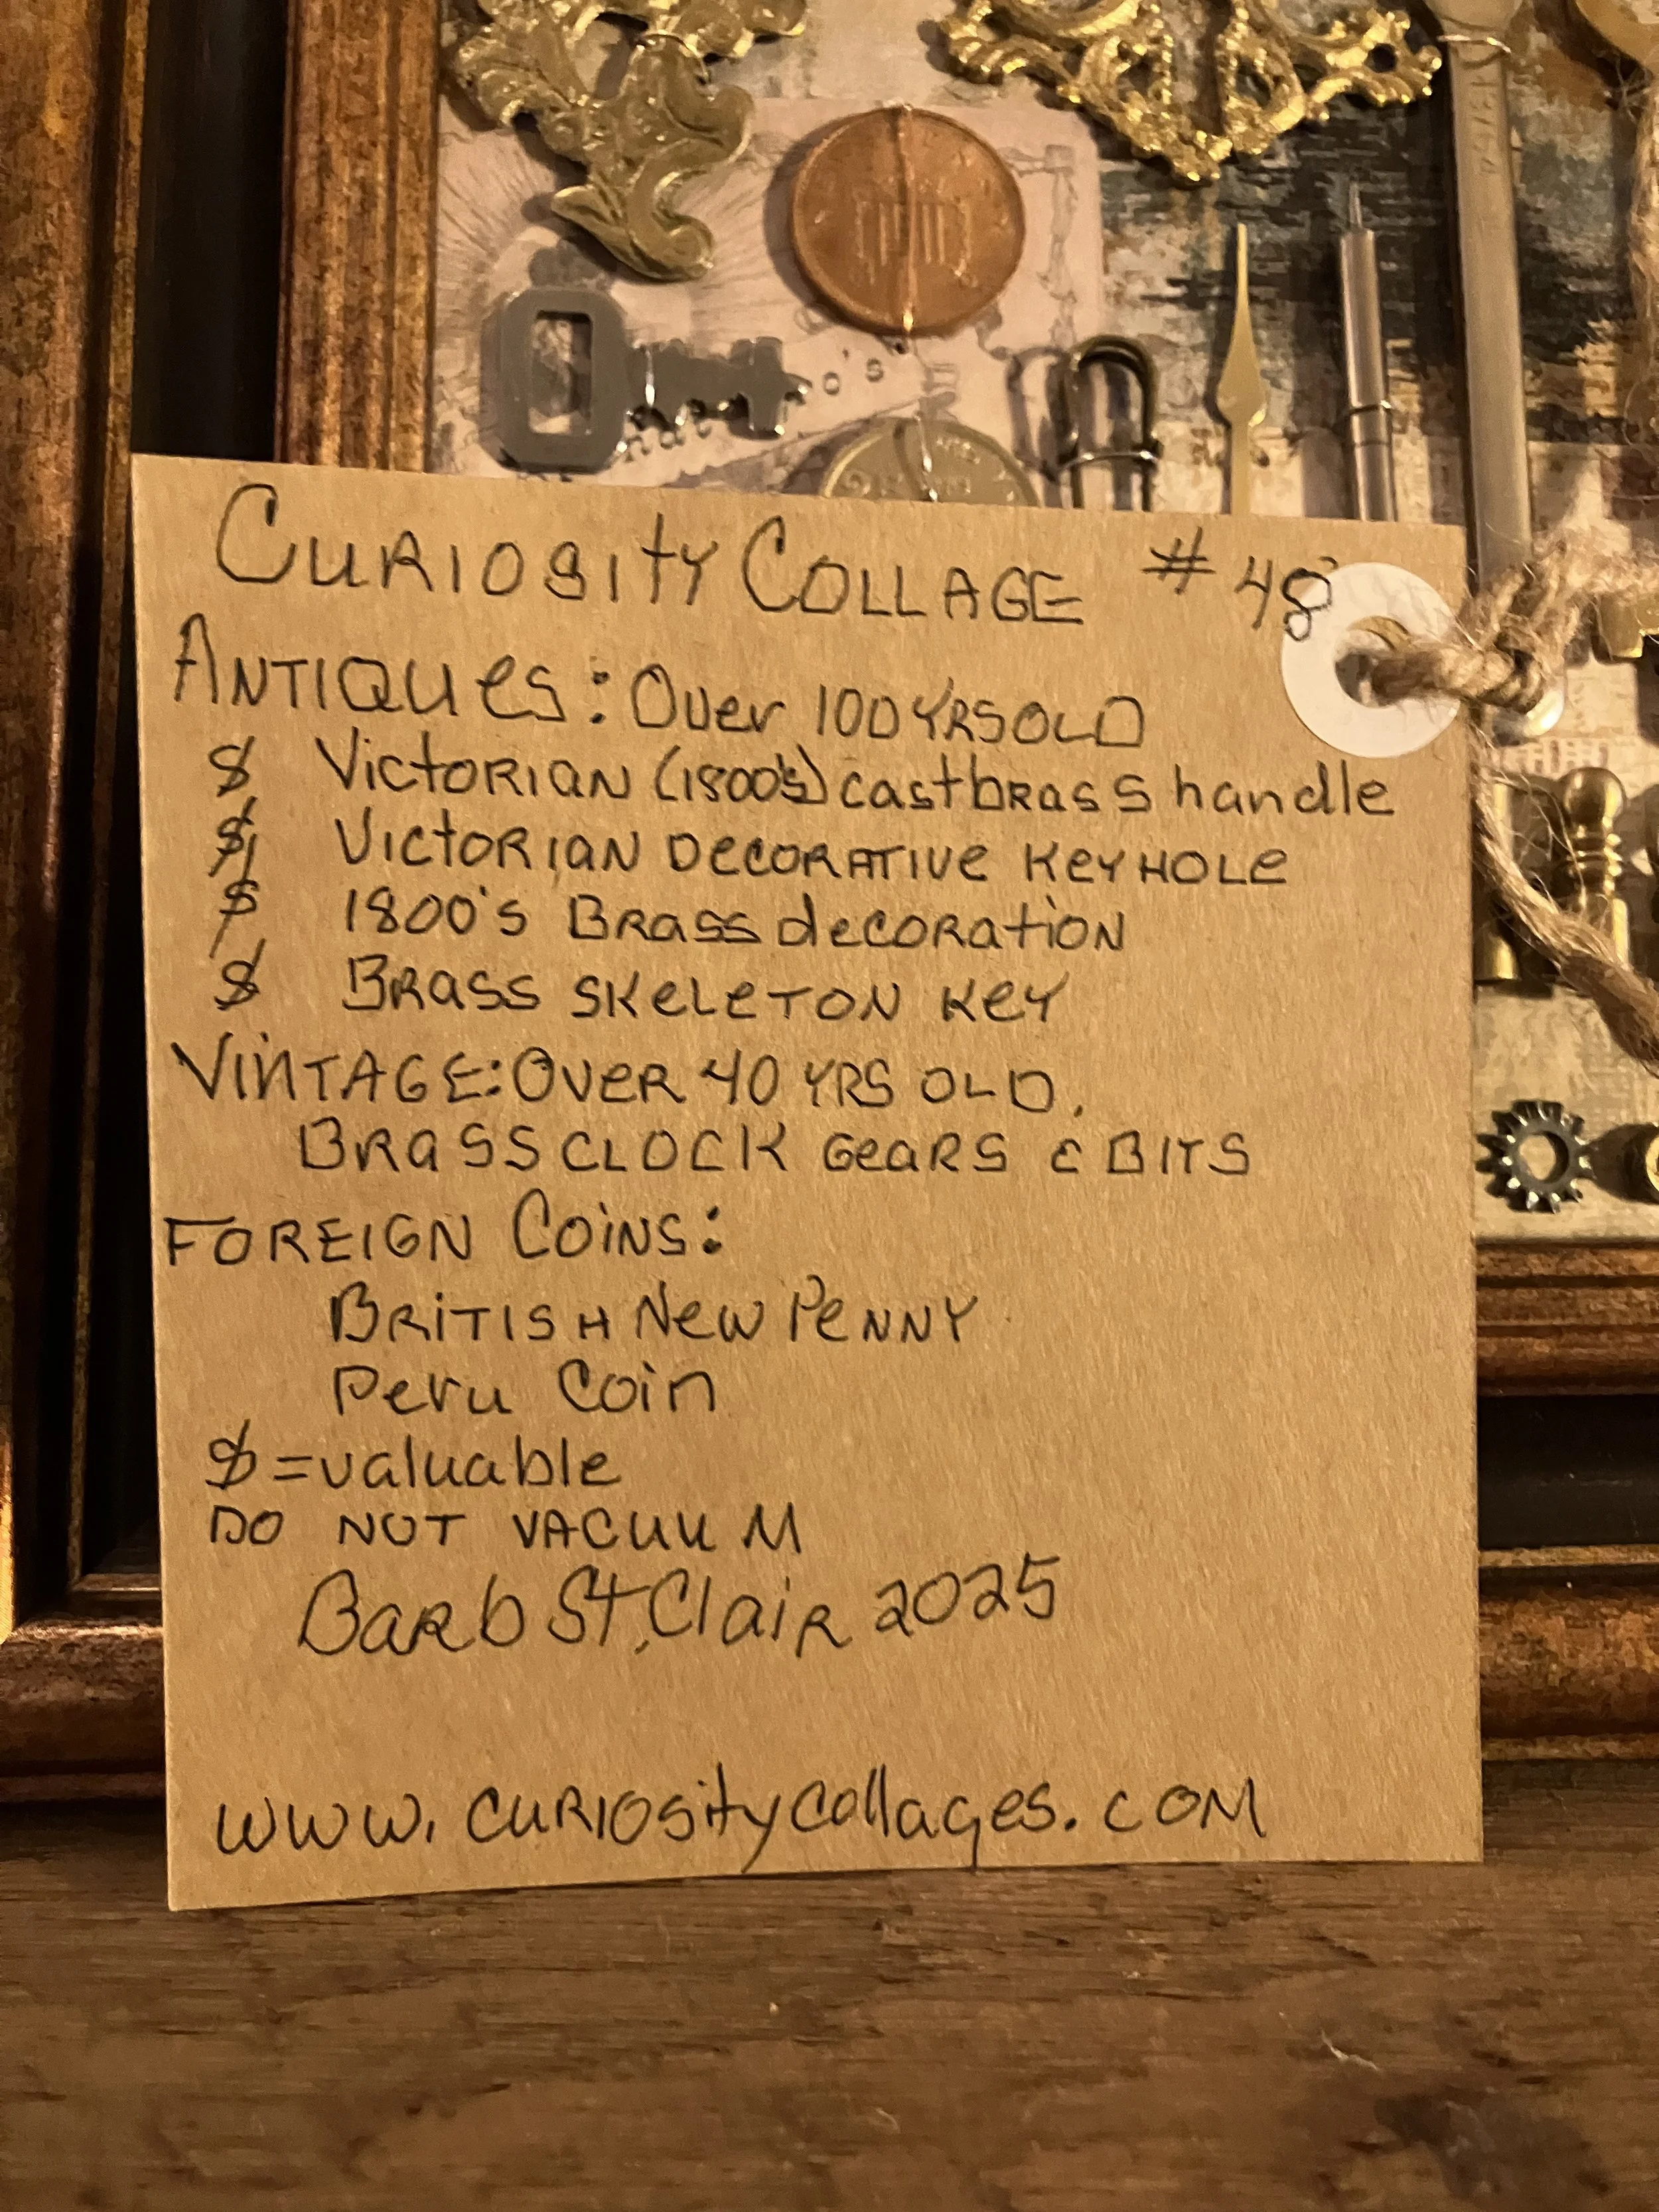 o's
nat
CURIOSITY COLLAGE # 48
ANTIQUES: Over 100 YRS OLD
$ VICTORIAN (1800's) cast brass handle
$ VICTORIAN DECORATIVE KEYHOLE
$ 1800'S BRASS decoration
$ BRASS SKELETON KEY
VINTAGE: OVER 40 YRS OLD.
BRASS CLOCK GEARS & BITS
FOREIGN COINS:
BRITISH NEW PENNY
Peru Coin
$ = valuable
DO NOT VACUUM
Barb St. Clair 2025
www.curiositycollages.com